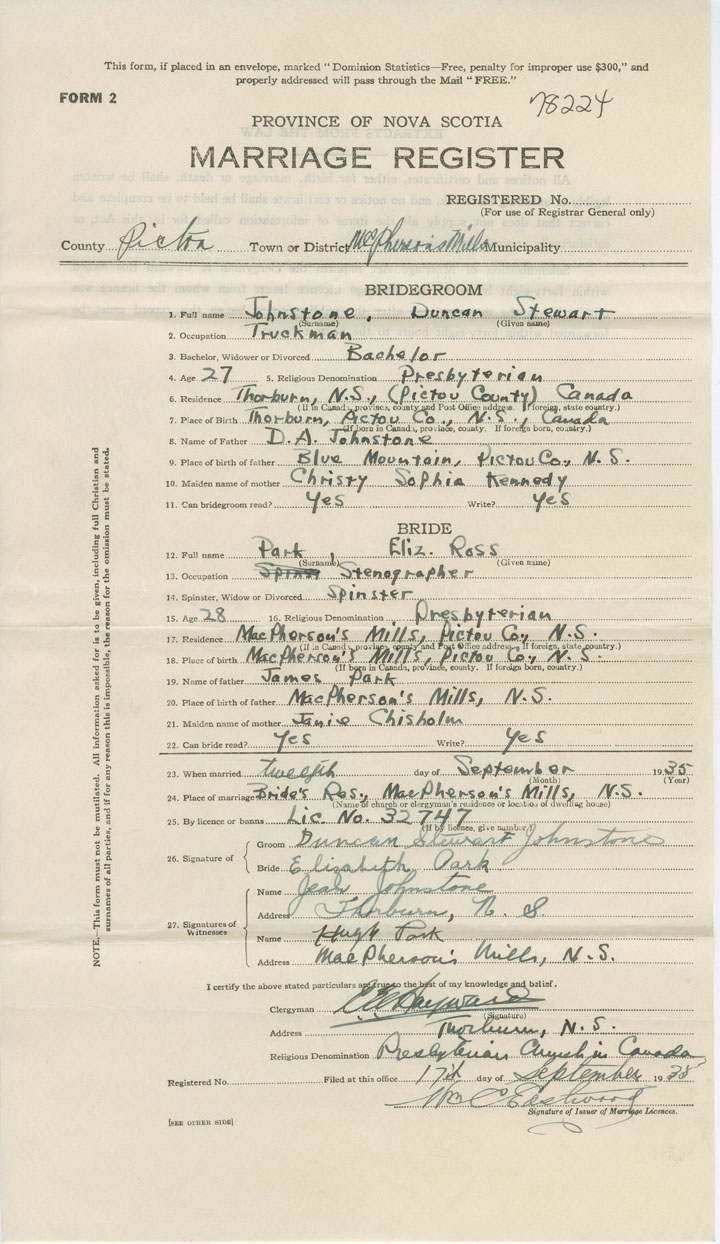 This form, if placed in an envelope, marked "Dominion Statistics—Free, penalty for improper use $300," and
properly addressed will pass through the Mail "FREE."
FORM 2
78224
PROVINCE OF NOVA SCOTIA
MARRIAGE REGISTER
REGISTERED No.
(For use of Registrar General only)
County Pictou Town or District McPherson's Mills Municipality
BRIDEGROOM
1. Full name Johnstone, Duncan Stewart
(Surname) (Given name)
2. Occupation Truckman
3. Bachelor, Widower or Divorced Bachelor
4. Age 27 5. Religious Denomination Presbyterian
6. Residence Thorburn, N.S., (Pictou County) Canada
(If in Canada, province, county and Post Office address. If foreign, state country.)
7. Place of Birth Thorburn, Pictou Co., N.S., Canada
(If born in Canada, province, county. If foreign born, country.)
8. Name of Father D.A. Johnstone
9. Place of birth of father Blue Mountain, Pictou Co., N.S.
10. Maiden name of mother Christy Sophia Kennedy
11. Can bridegroom read? Yes Write? Yes
BRIDE
12. Full name Park, Eliz. Ross
(Surname) (Given name)
13. Occupation Stenographer
14. Spinster, Widow or Divorced Spinster
15. Age 28 16. Religious Denomination Presbyterian
17. Residence MacPherson's Mills, Pictou Co., N.S.
(If in Canada, province, county and Post Office address. If foreign, state country.)
18. Place of birth MacPherson's Mills, Pictou Co., N.S.
(If born in Canada, province, county. If foreign born, country.)
19. Name of father James Park
20. Place of birth of father MacPherson's Mills, N.S.
21. Maiden name of mother Janie Chisholm
22. Can bride read? Yes Write? Yes
23. When married twelfth day of September 1935
(Month) (Year)
24. Place of marriage Bride's Res., MacPherson's Mills, N.S.
(Name of church or clergyman's residence or location of dwelling house)
25. By licence or banns Lic. No. 32747
(If by licence, give number.)
26. Signature of
Groom Duncan Stewart Johnstone
Bride Elizabeth Park
27. Signatures of Witnesses
Name Jean Johnstone
Address Thorburn, N.S.
Name Hugh Park
Address MacPherson's Mills, N.S.
I certify the above stated particulars are true to the best of my knowledge and belief.
Clergyman Hayward
(Signature)
Address Thorburn, N.S.
Religious Denomination Presbyterian Church in Canada
Registered No. Filed at this office 17th day of September 1935
Wm C Eastwood
Signature of Issuer of Marriage Licences.
[SEE OTHER SIDE]
NOTE.—This form must not be mutilated. All information asked for is to be given, including full Christian and
surnames of all parties, and if for any reason this is impossible, the reason for the omission must be stated.